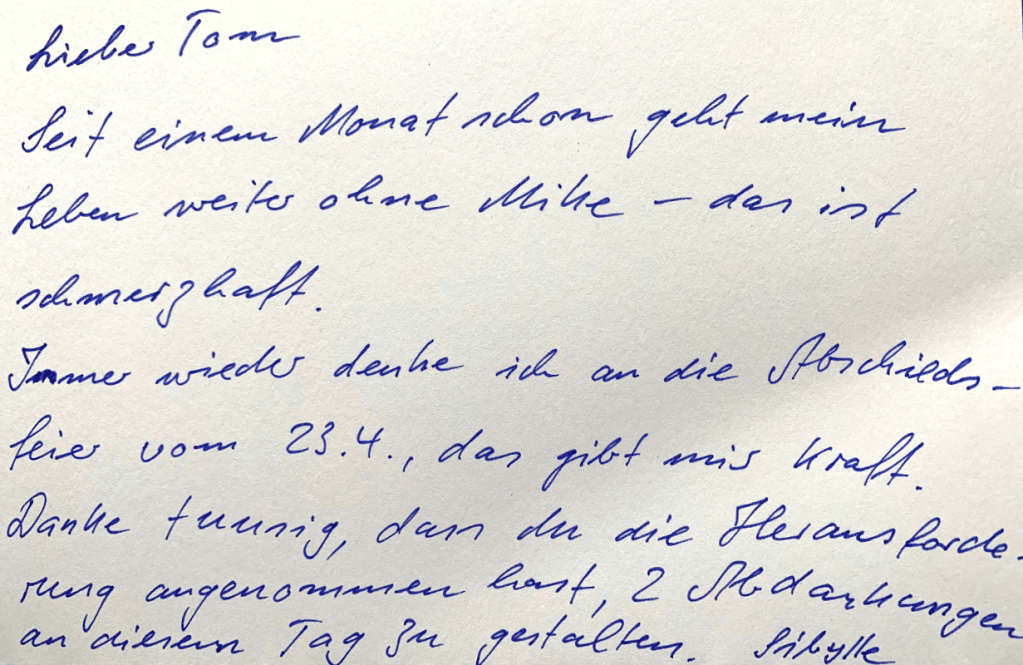 Lieber Tom
Seit einem Monat schon geht mein
Leben weiter ohne Mike – das ist
schmerzhaft.
Immer wieder denke ich an die Abschieds–
feier vom 23.4., das gibt mir Kraft.
Danke tuusig, dass du die Herausforde-
rung angenommen hast, 2 Abdankungen
an diesem Tag zu gestalten. Sibylle